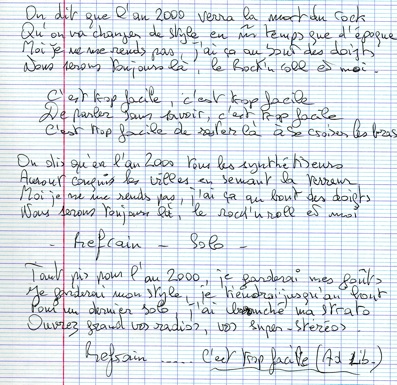 On dit que l'an 2000 verra la mort du rock
Qu'on va changer de style en mś temps que d'époque
Moi je ne me rends pas, j'ai ça au bout des doigts
Nous serons toujours là, le Rock'n roll et moi.
C'est trop facile, c'est trop facile
De parler sans savoir, c'est trop facile
C'est trop facile de rester là à se croiser les bras
On dit qu'en l'an 2000 tous les synthétiseurs
Auront conquis les villes en semant la terreur
Moi je ne me rends pas, j'ai ça au bout des doigts
Nous serons toujours là, le rock'n roll et moi
- Refrain - Solo -
Tant pis pour l'an 2000, je garderai mes goûts
Je garderai mon style, je tiendrai jusqu'au bout
Pour un dernier solo, j'ai branché ma strato
Ouvrez grand vos radios, vos super-stéréos.
Refrain ..... C'est trop facile (Ad Lib.)